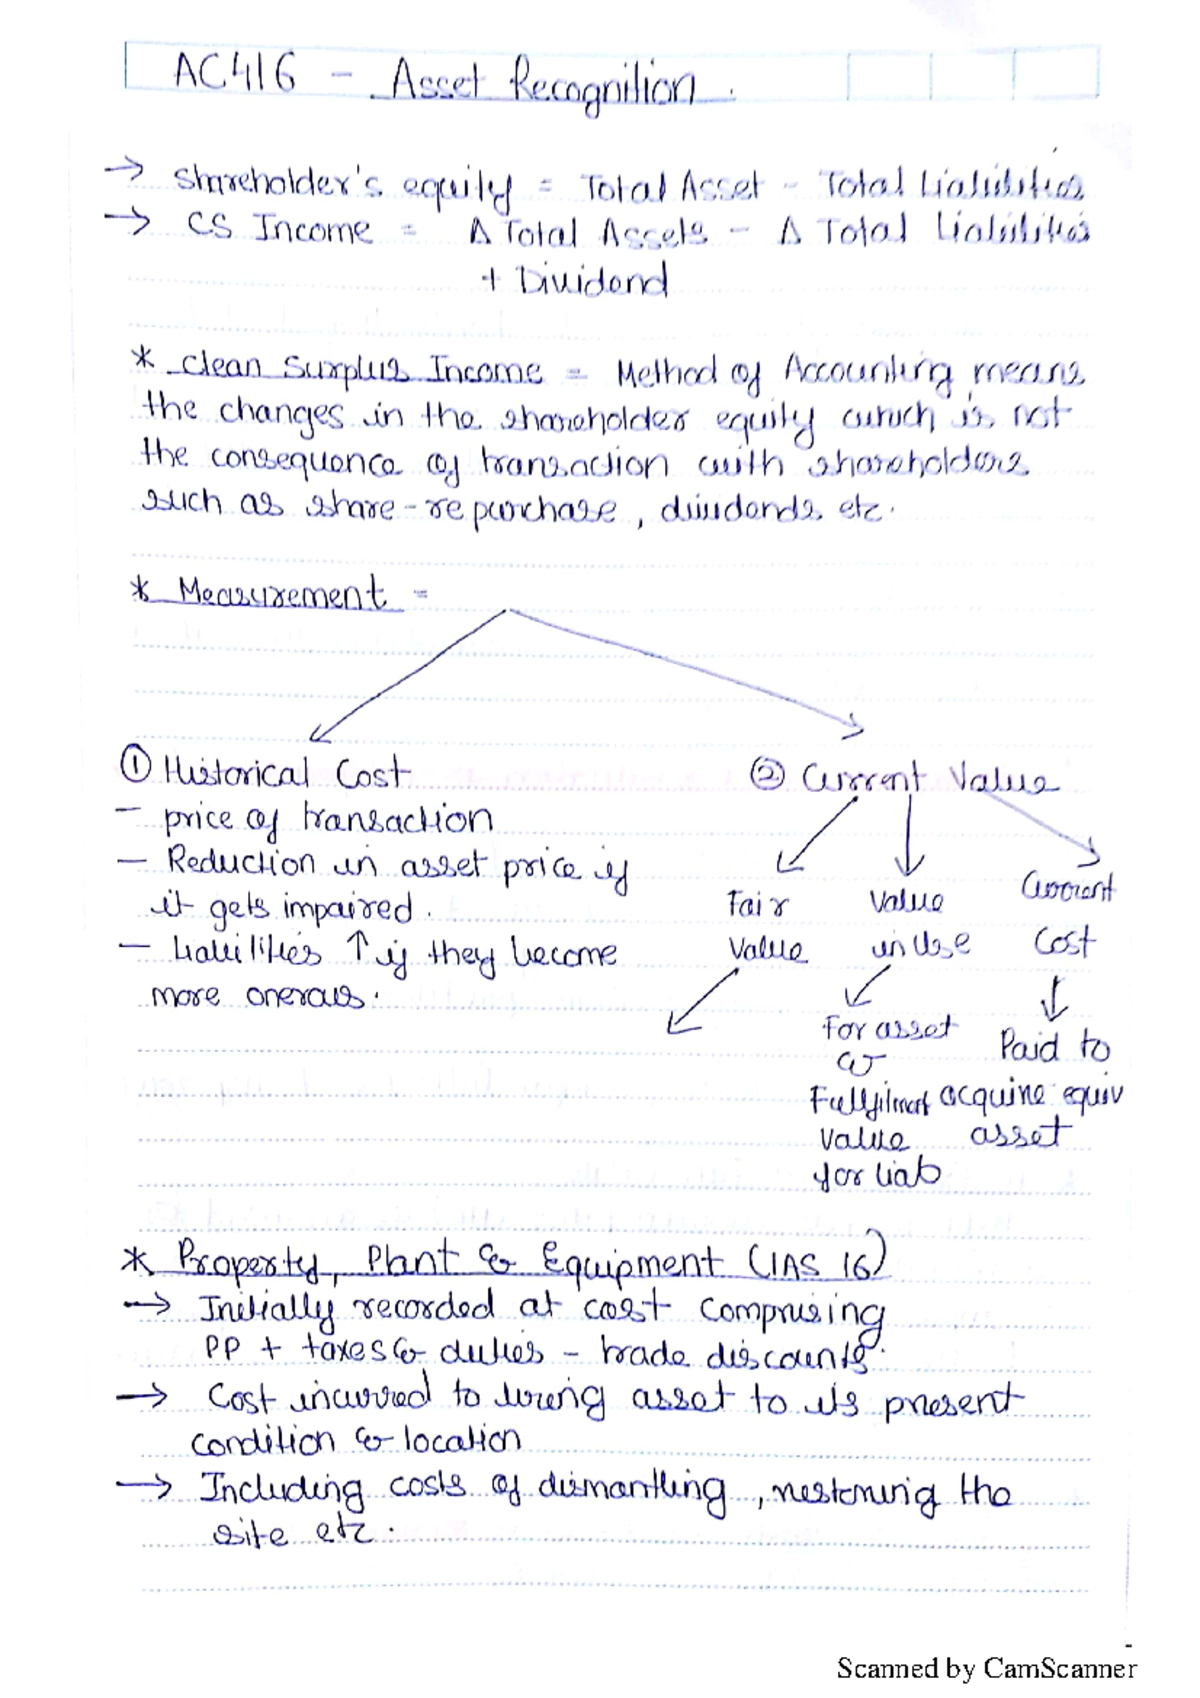 AC416 - Asset Recognition.
→ Shareholder's equity = Total Asset - Total Liabilities
→ CS Income = Δ Total Assets - Δ Total Liabilities
+ Dividend
* Clean Surplus Income = Method of Accounting means
the changes in the shareholder equity which is not
the consequence of transaction with shareholders
such as share-repurchase, dividends etc.
* Measurement =
① Historical Cost
- price of transaction
- Reduction in asset price if
it gets impaired.
- Liabilities ↑ if they become
more onerous.
② Current Value
Fair
Value
Value
in Use
For asset
or
Fulfilment
value
for liab
Current
Cost
Paid to
acquire equiv
asset
* Property, Plant & Equipment (IAS 16)
→ Initially recorded at cost comprising
PP + taxes & duties - trade discounts.
→ Cost incurred to bring asset to its present
condition & location
→ Including costs of dismantling, restoring the
site etc.
Scanned by CamScanner